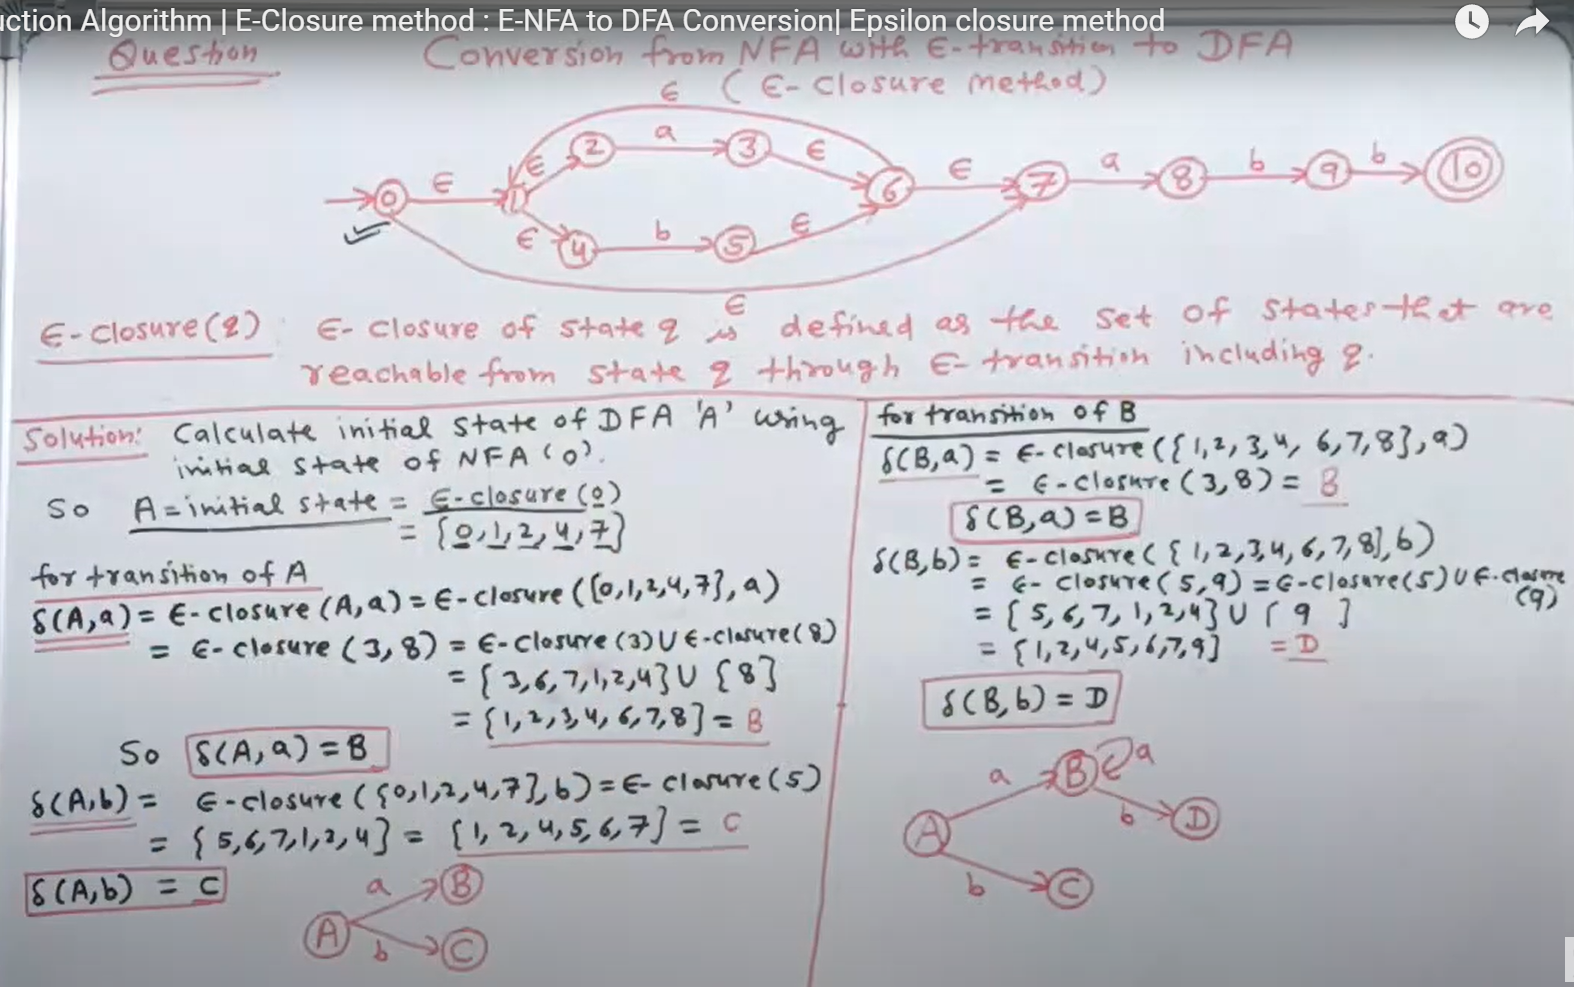 uction Algorithm | E-Closure method : E-NFA to DFA Conversion| Epsilon closure method
Question
Conversion from NFA with ϵ-transition to DFA
(ϵ-closure method)
ϵ
ϵ 2 a 3 ϵ
0 ϵ 1 6 ϵ 7 a 8 b 9 b 10
ϵ 4 b 5 ϵ
ϵ
ϵ-closure(q) : ϵ-closure of state q is defined as the set of states that are
reachable from state q through ϵ-transition including q.
Solution: Calculate initial state of DFA 'A' using
initial state of NFA (0).
So A = initial state = ϵ-closure(0)
= {0,1,2,4,7}
for transition of A
δ(A,a) = ϵ-closure(A,a) = ϵ-closure({0,1,2,4,7},a)
= ϵ-closure(3,8) = ϵ-closure(3) ∪ ϵ-closure(8)
= {3,6,7,1,2,4} ∪ {8}
= {1,2,3,4,6,7,8} = B
So δ(A,a) = B
δ(A,b) = ϵ-closure({0,1,2,4,7},b) = ϵ-closure(5)
= {5,6,7,1,2,4} = {1,2,4,5,6,7} = C
δ(A,b) = C
a B
A
b C
for transition of B
δ(B,a) = ϵ-closure({1,2,3,4,6,7,8},a)
= ϵ-closure(3,8) = B
δ(B,a) = B
δ(B,b) = ϵ-closure({1,2,3,4,6,7,8},b)
= ϵ-closure(5,9) = ϵ-closure(5) ∪ ϵ-closure
(9)
= {5,6,7,1,2,4} ∪ {9}
= {1,2,4,5,6,7,9} = D
δ(B,b) = D
a B a
A b D
b C